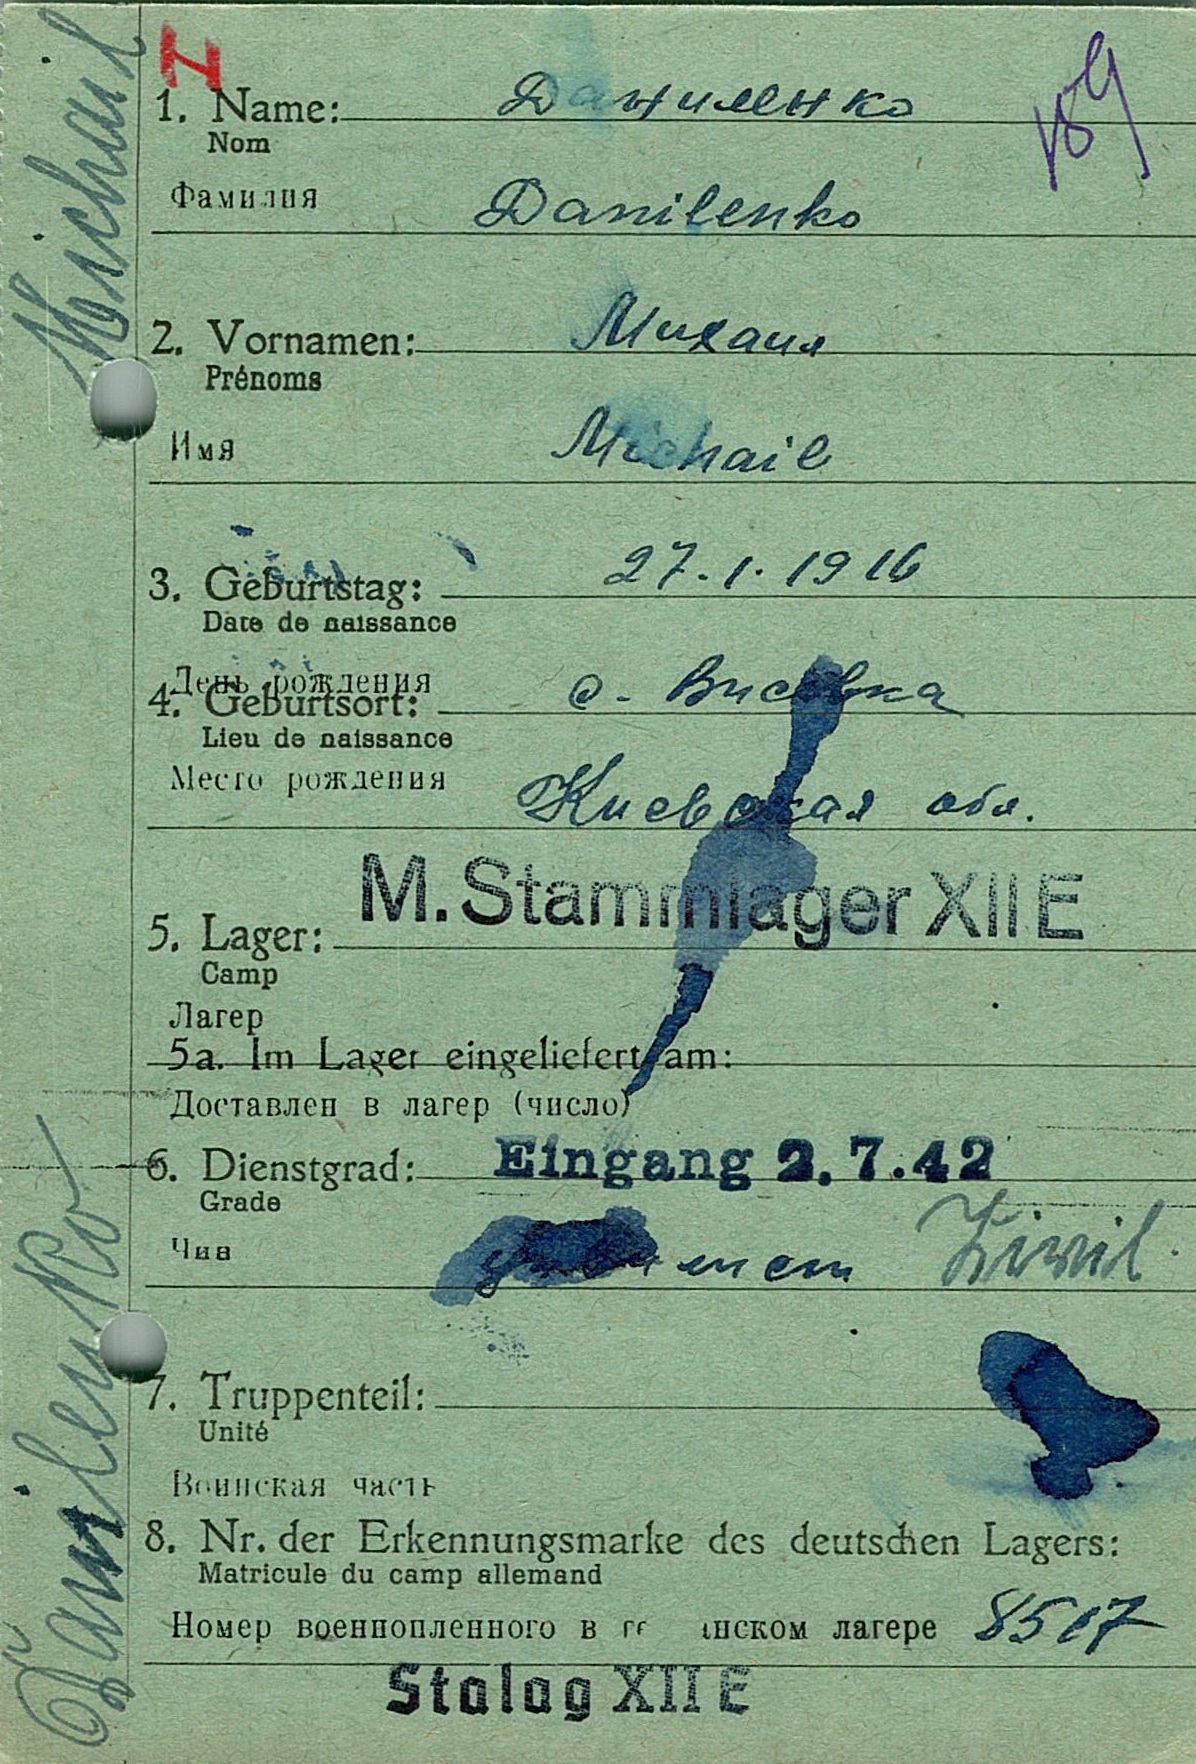 Michail
N
189
1. Name: Даниленко
Nom
Фамилия Danilenko
2. Vornamen: Михаил
Prénoms
Имя Michail
3. Geburtstag: 27.1.1916
Date de naissance
День рождения
4. Geburtsort: с. Висовка
Lieu de naissance
Место рождения Киевская обл.
M. Stammlager XII E
5. Lager:
Camp
Лагер
5a. Im Lager eingeliefert am:
Доставлен в лагер (число)
Eingang 2.7.42
6. Dienstgrad:
Grade
Чин Zivil
7. Truppenteil:
Unité
Воинская часть
8. Nr. der Erkennungsmarke des deutschen Lagers:
Matricule du camp allemand
Номер военнопленного в лагере 8517
Stalag XII E
Danilenko